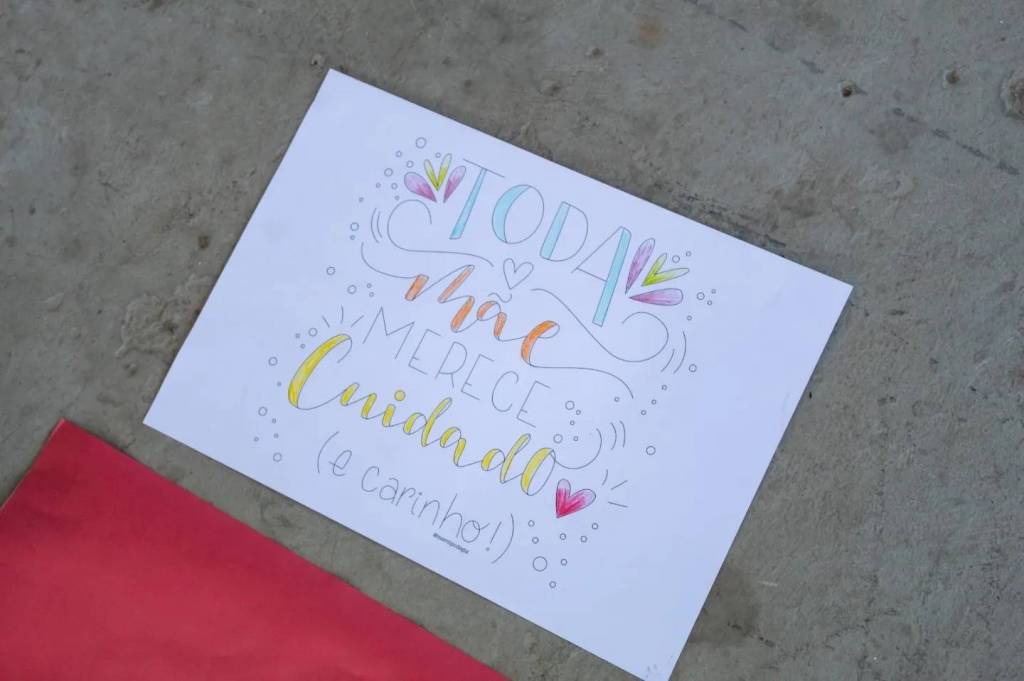 TODA
mãe
MERECE
Cuidado
(e carinho!)